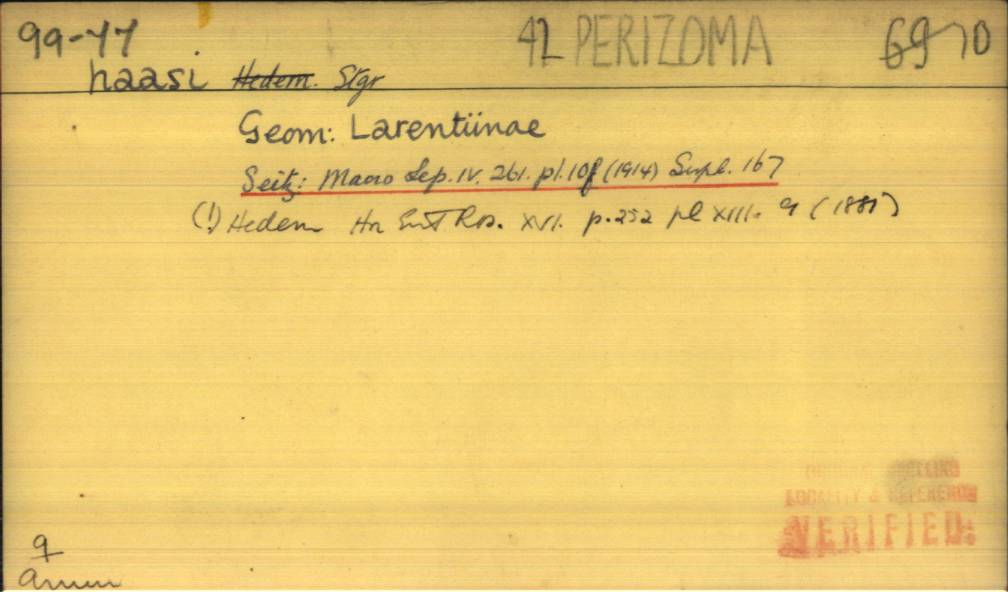 99-77 42 PERIZOMA 6970
haasi Hedem. Stgr
Geom: Larentiinae
Seitz: Macro Lep. IV. 261. pl. 10f (1914) Supl. 167
(!) Hedem Hr Ent Ros. XVI. p. 252 pl XIII. 9 (1881)
SPELLING
LOCALITY & REFERENCE
VERIFIED
9
amur